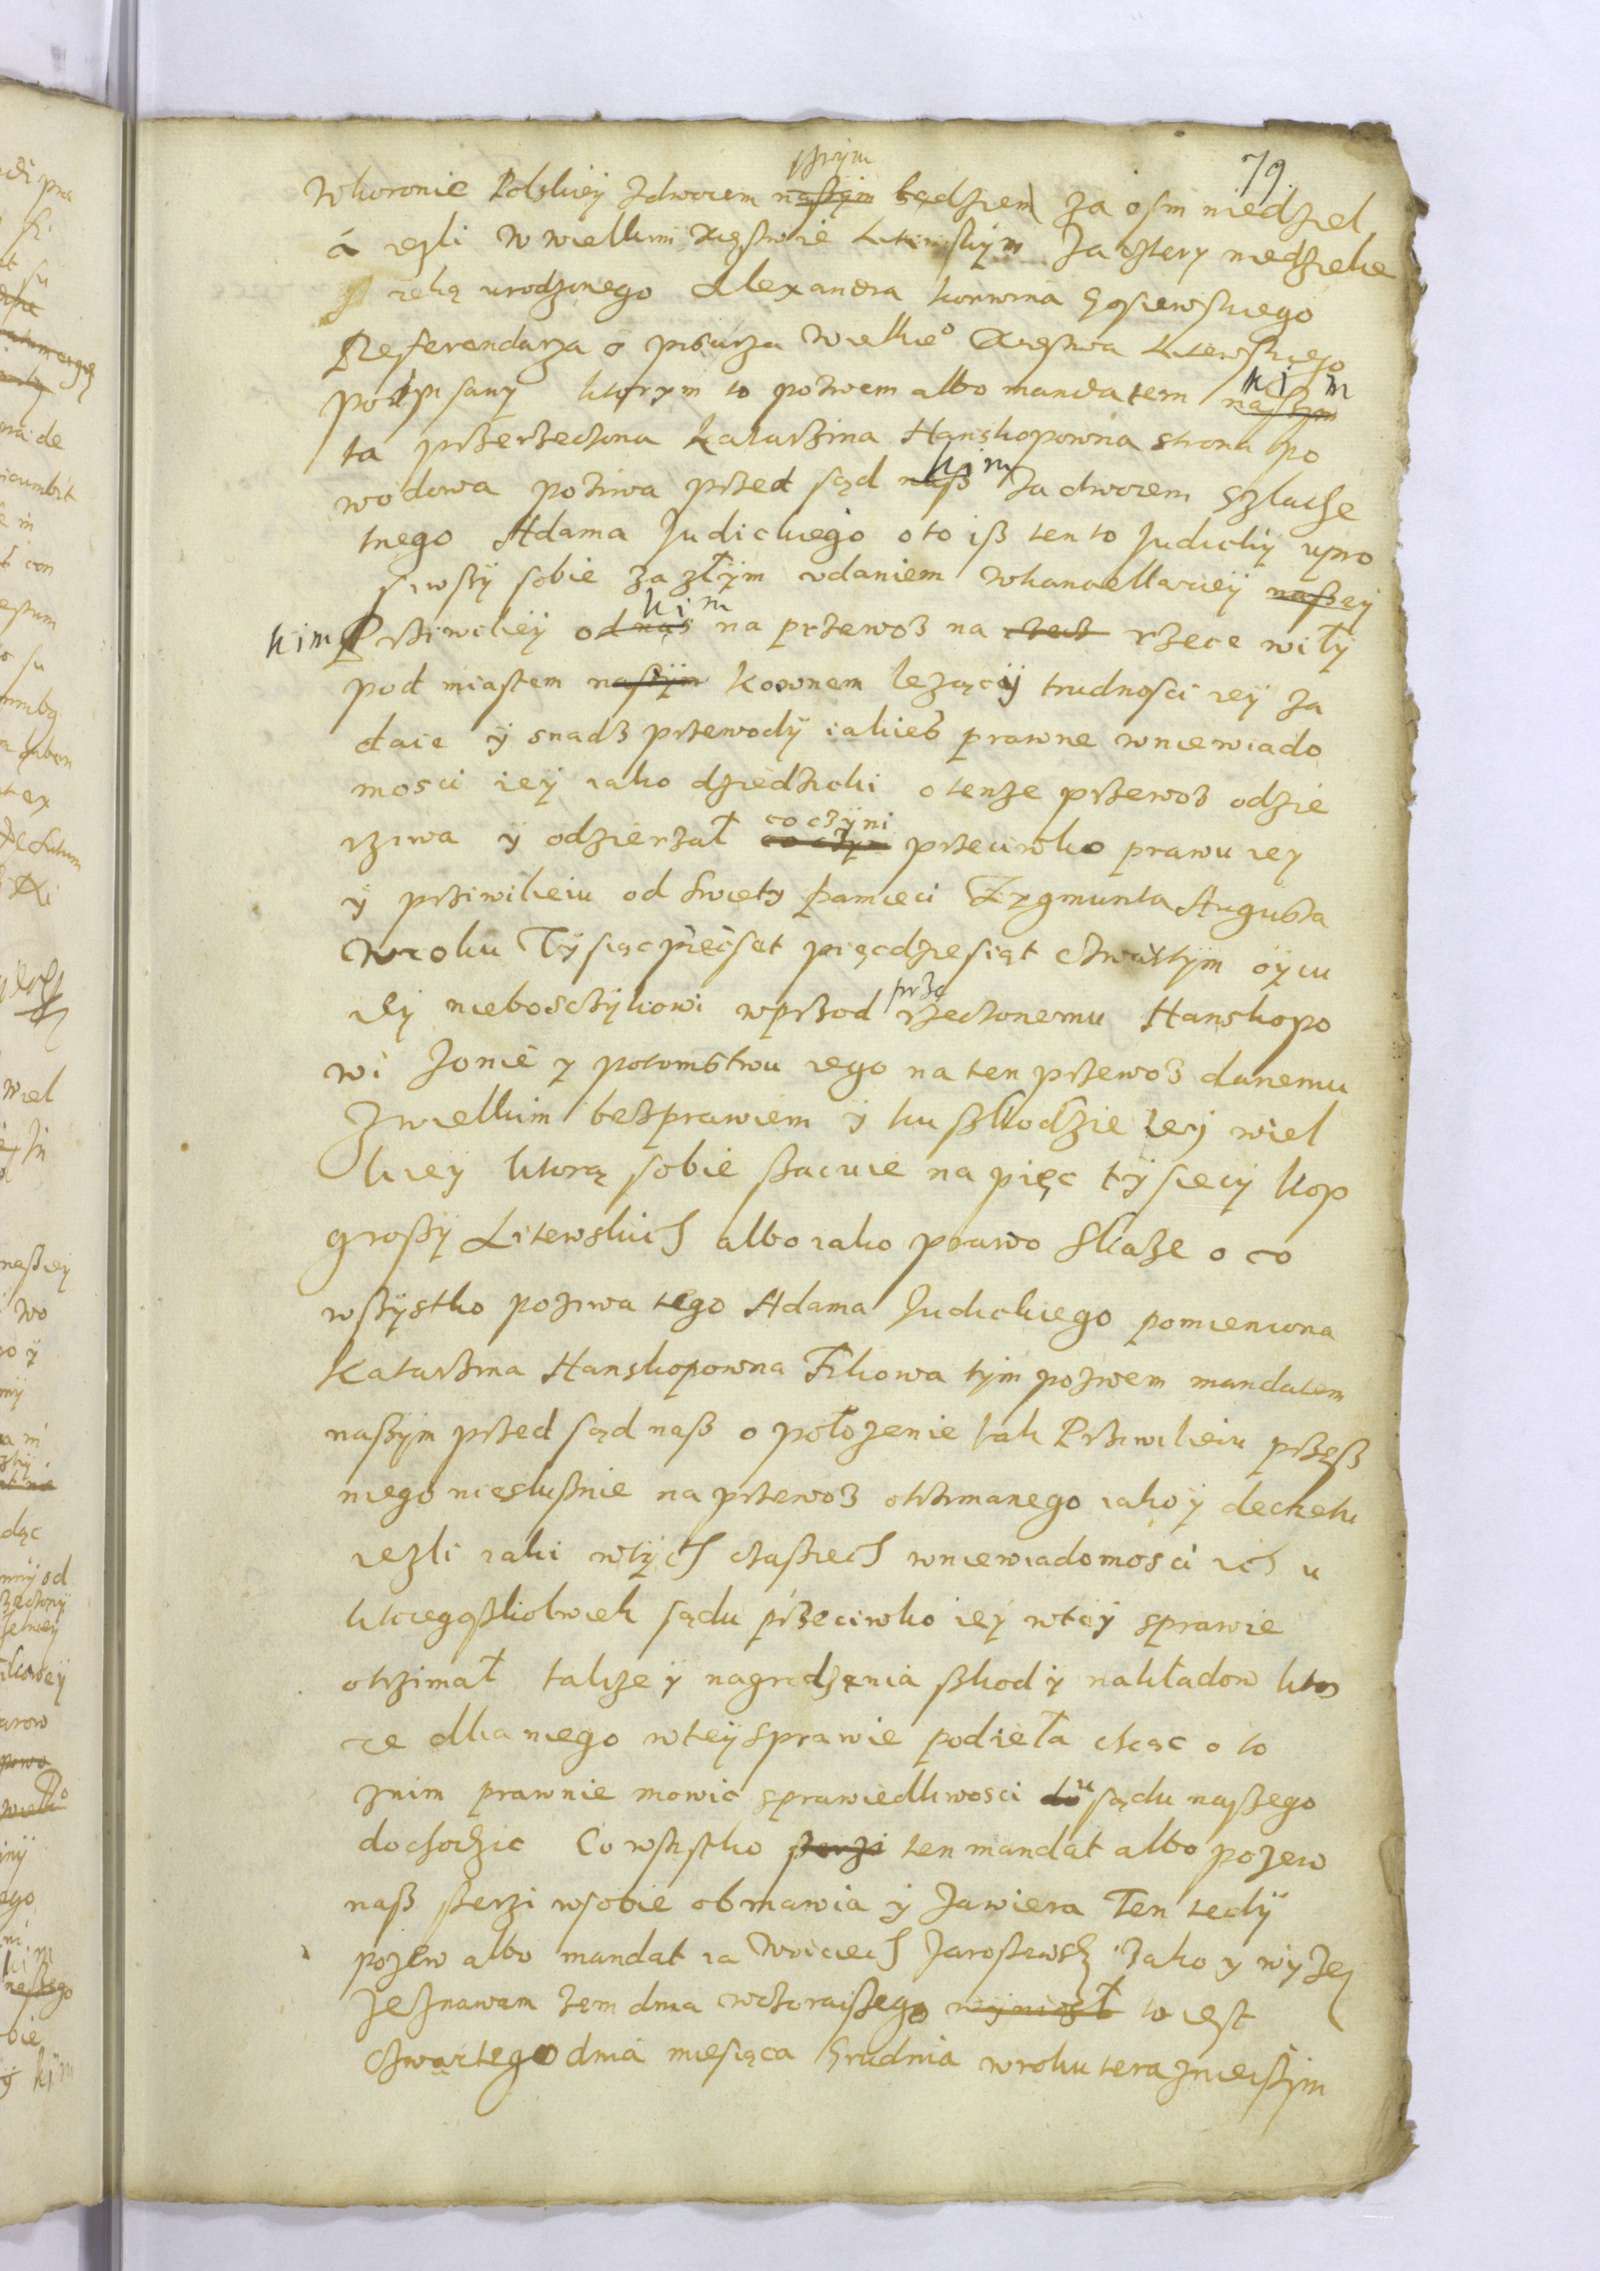 79.
swym
w koronie Polskiey z dworem naszym będziem za osm niedziel
á iesli w wielkim Xięstwie Litewskim za cztery niedziele
y ręką urodzonego Alexandra Korwina Gosiewskiego
Referendarza o pisarza Wielkieo Xięstwa Litewskiego
podpisany ktorym to pozwem albo mandatem naszym kim
ta przerzeczona Katarzina Hanskopowna strona po
wodowa poziwa przed sąd nasz kim za dworem szlache
tnego Adama Judickiego o to isz ten to Judicky upro
siwszy sobie za złym udaniem w kancellariey naszey
kim Prziwiley od nas kim na przewoz na rzece wiły
pod miastem naszym kownem lezący trudnosci iey za
daie y snadz przewody iakies prawne w niewiado
mosci iey iako dziedziczki o tenze przewoz odzie
rziwa y odzierzał co czyni przeciwko prawu iey
y prziwileiu od swięty pamięci Zygmunta Augusta
w roku Tysiąc pięcset pięcdziesiąt czwartym oycu
iey nieboszczykowi wprzod prze rzeczonemu Hanskopo
wi zonie y potomstwu iego na ten przewoz danemu
z wielkim bezprawiem y ku szkodzie iey wiel
kiey ktorą sobie szacuie na pięc tysięcy kop
groszy Litewskich albo iako prawo skaze o co
wszystko pozwa tego Adama Judickiego pomieniona
Katarzina Hanskopowna Filkowa tym pozwem mandatem
naszym przed sąd nasz o połozenie tak Prziwileiu przesz
niego niesłusznie na przewoz otrzimanego iako y decretu
iezli iaki w tych czasziech w niewiadomosci ich u
ktoregoszkolwiek sądu przeciwko iey w tey sprawie
otrzimał takze y nagrodzenia szkod y nakładow kto
re dla niego w tey sprawie podieła chcąc o to
z nim prawnie mowic sprawiedliwosci do u sądu naszego
dochodzic Co wszistko szerzi ten mandat albo pozew
nasz szerzi w sobie obmawia y zawiera Ten tedy
pozew albo mandat ia Woiciech Jaroszewsky Jako y wyzey
zeznawam zem dnia wczoraiszego wyniosł to iest
czwartego dnia miesiąca Grudnia w roku teraznieiszym